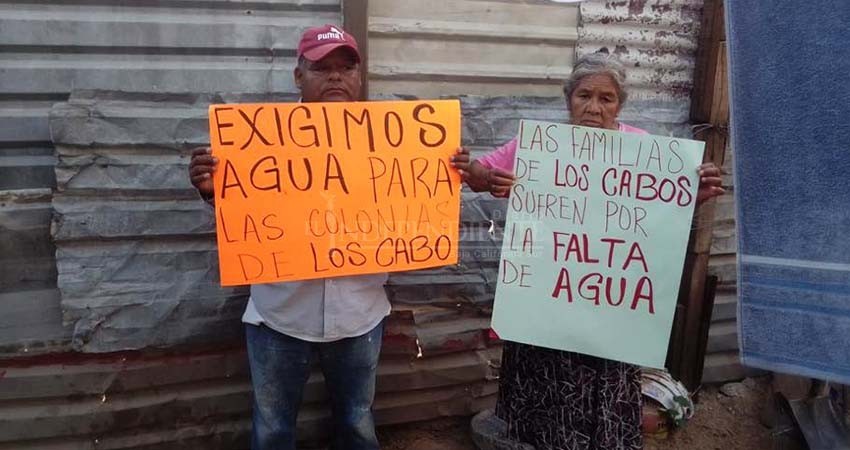 PUMA
EXIGIMOS
AGUA PARA
LAS COLONIAS
DE LOS CABO
LAS FAMILIAS
DE LOS CABOS
SUFREN POR
LA FALTA
DE AGUA